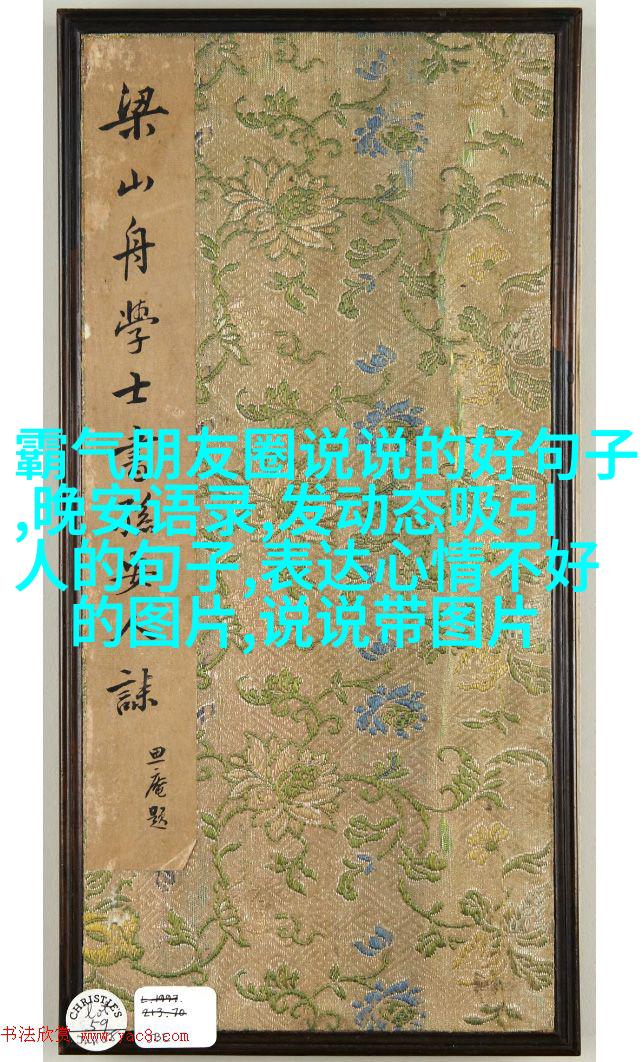 梁山舟學士書孫人誄
庵題
霸气朋友圈说说的好句子
,晚安语录,发动态吸引
人的句子,表达心情不好
的图片,说说带图片
CHRISTIE'S
Lot
59
L.1997.
213.70
书法欣赏 www.yac8.com